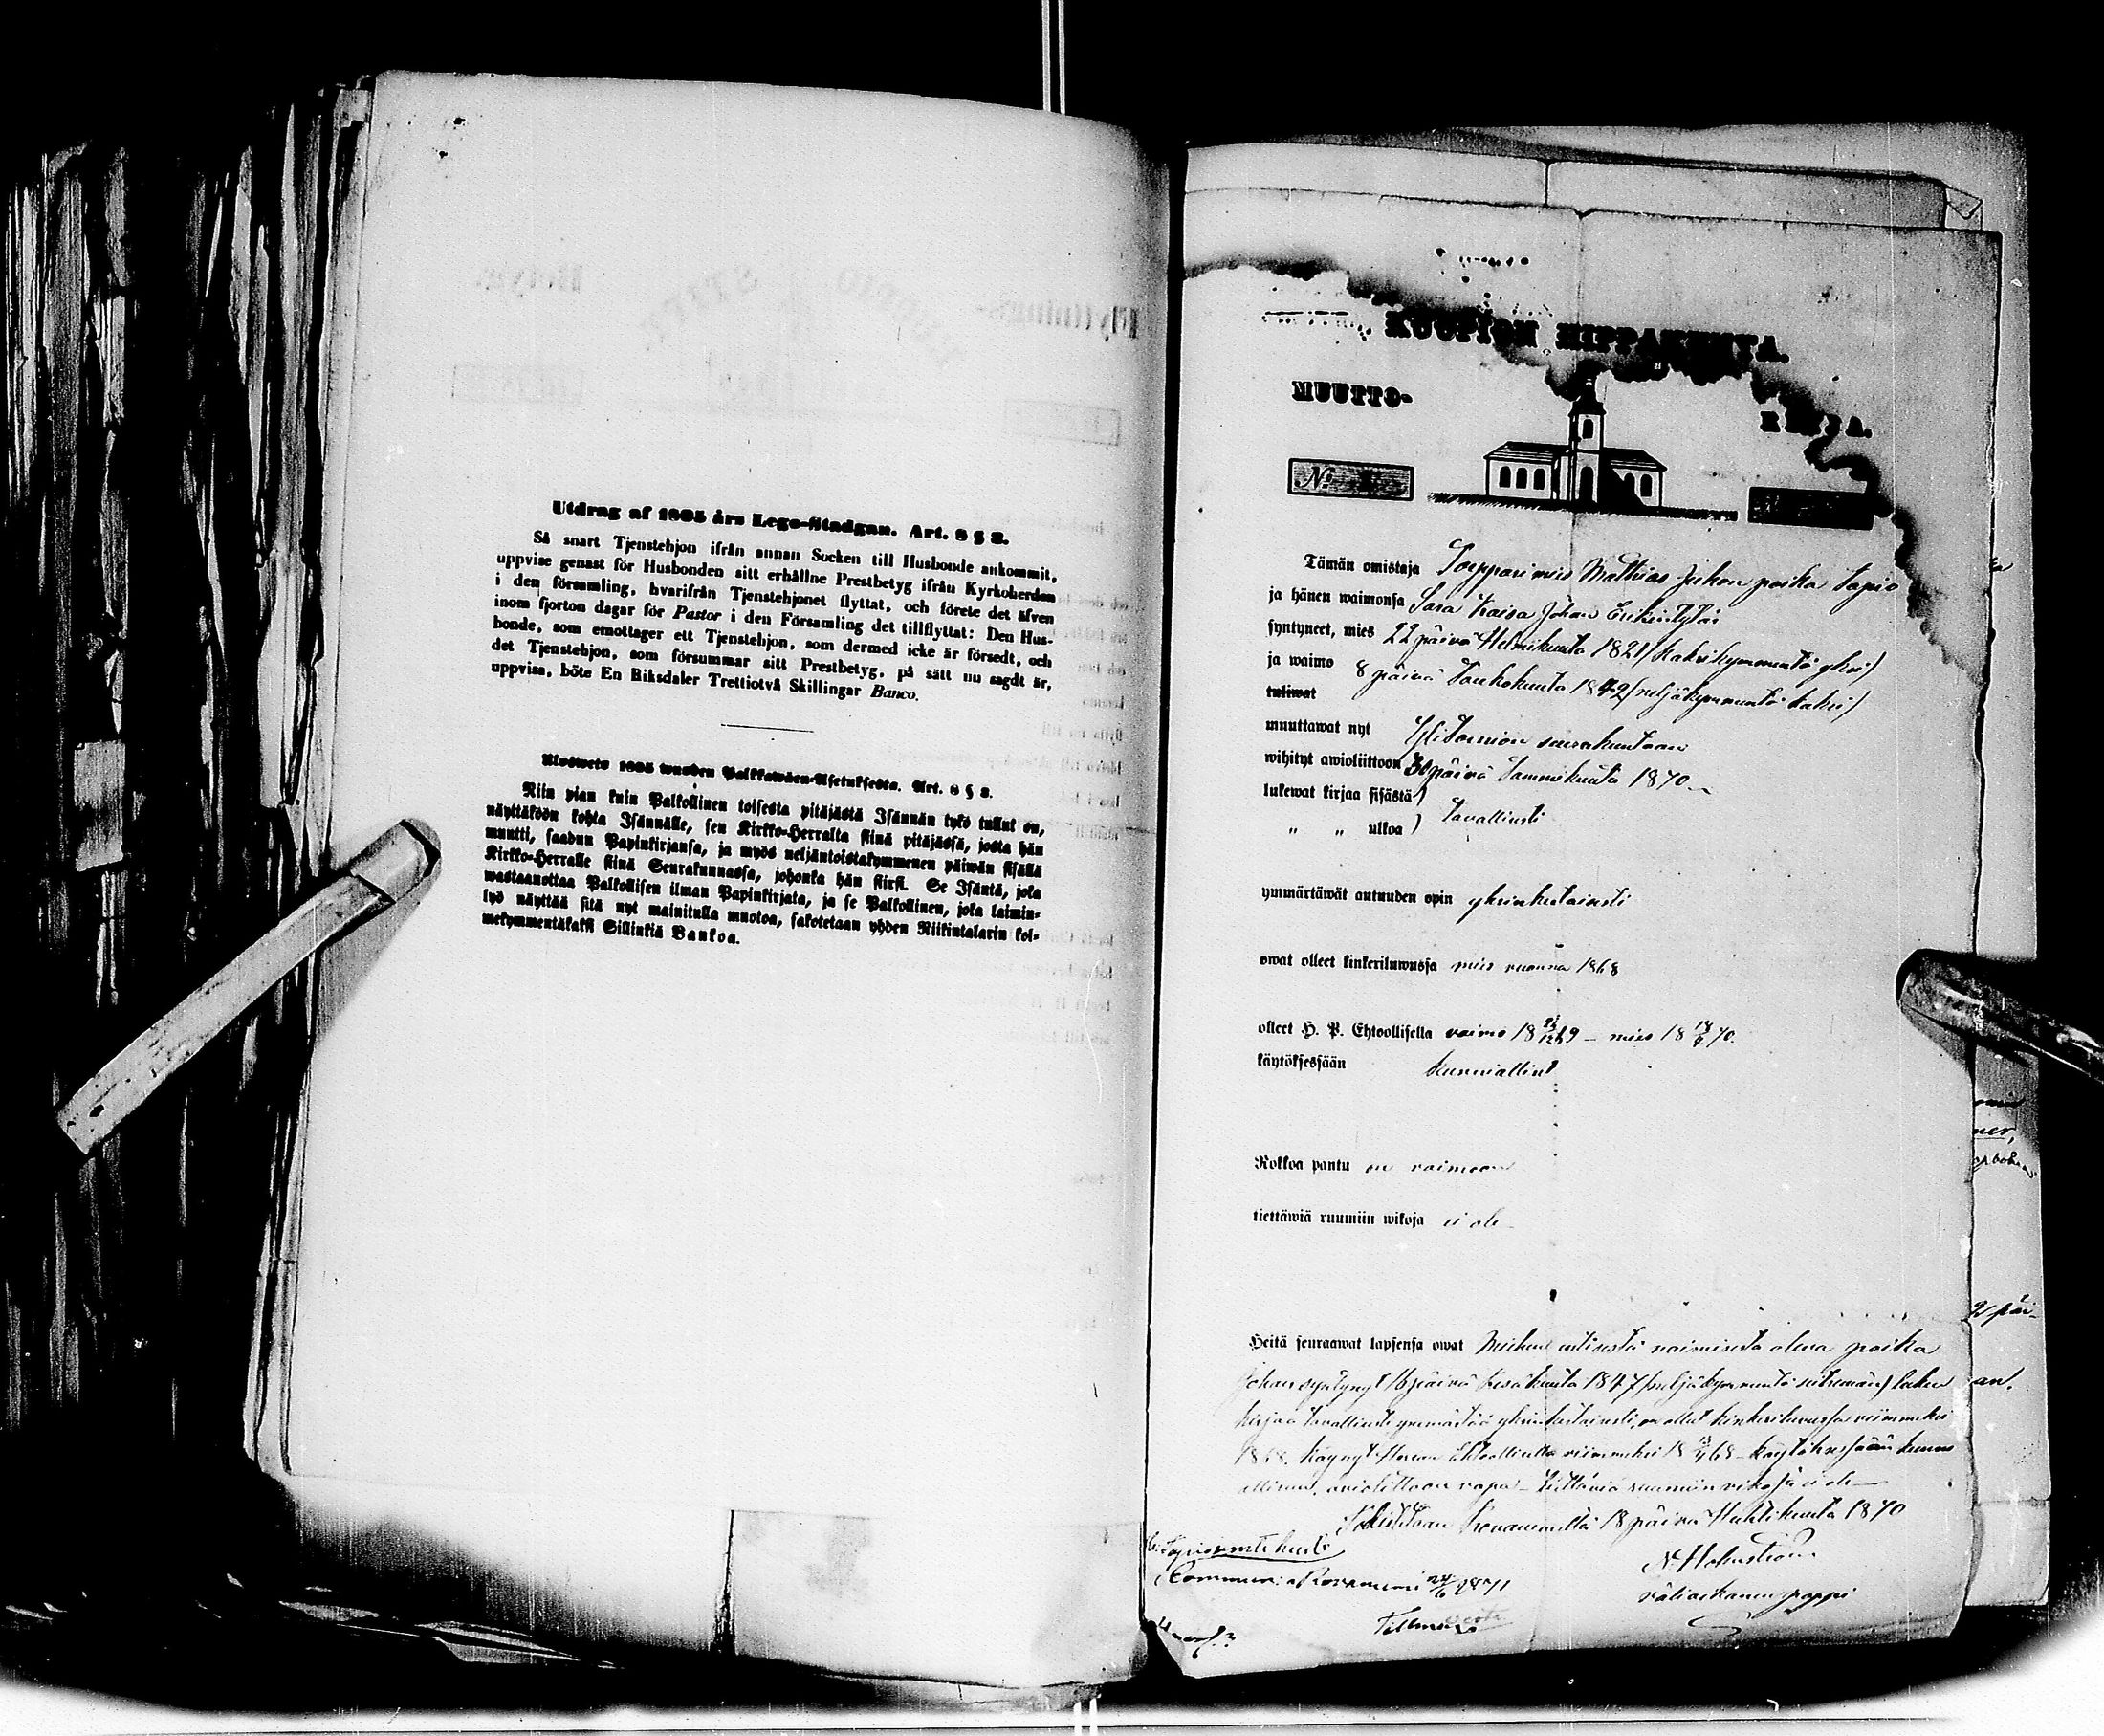 Utdrag af 1805 års Lego-Stadgan. Art. 8 § 2.
Så snart Tjenstehjon ifrån annan Socken till Husbonde ankommit,
uppvise genast för Husbonden sitt erhållne Prestbetyg ifrån Kyrkoherden
i den församling, hvarifrån Tjenstehjonet flyttat, och förete det äfven
inom fjorton dagar för Pastor i den Församling det tillflyttat: Den Hus-
bonde, som emottager ett Tjenstehjon, som dermed icke är försedt, och
det Tjenstehjon, som försummar sitt Prestbetyg, på sätt nu sagdt är,
uppvisa, böte En Riksdaler Trettiotvå Skillingar Banco.
Ulosweto 1805 wuoden Palkkawäen-Asetuksesta. Art. 8 § 2.
Niin pian kuin Palkollinen toisesta pitäjästä Isännän tykö tullut on,
näyttäköön kohta Isännälle, sen Kirkko-Herralta siinä pitäjässä, josta hän
muutti, saadun Papinkirjansa, ja myös neljäntoistakymmenen päiwän sisällä
Kirkko-Herralle siinä Seurakunnassa, johonka hän siirsi. Se Isäntä, joka
wastaanottaa Palkollisen ilman Papinkirjata, ja se Palkollinen, joka laimin-
lyö näyttää sitä nyt mainitulla muotoa, sakotetaan yhden Riikintalarin kol-
mekymmentäkaksi Sillinkiä Bankoa.
KUOPION HIPPAKUNTA.
MUUTTO-
KIRJA.
N:
Tämän omistaja Torpparimies Mathias Juhon poika Tapio
ja hänen waimonsa Sara Kaisa Johan Erikintytär
syntyneet, mies 22 päivä Helmikuuta 1821 (kaksikymmentä yksi)
ja waimo 8 päivä Toukokuuta 1842 (neljäkymmentä kaksi)
tuliwat
muuttawat nyt Ylitornion seurakuntaan
wihityt awioliittoon 30 päivä Tammikuuta 1870
lukewat kirjaa sisästä )
" " ulkoa ) tavallisesti
ymmärtäwät autuuden opin yksinkertaisesti
owat olleet kinkeriluwussa mies vuonna 1868
olleet H. P. Ehtoollisella vaimo 18 /12 69 – mies 18 70.
käytöksessään kunniallisel
Rokkoa pantu on vaimoon
tiettäwiä ruumiin wikoja ei ole
Heitä seuraawat lapsensa owat Miehen entisestä naimisesta oleva poika
Johan syntynyt 16 päivä Kesäkuuta 1847 (neljäkymmentä seitsemän) lukee
kirjaa tavallisesti ymmärtää yksinkertaisesti, on ollut kinkeriluvussa viimmeksi
1868. Käynyt Herran Ehtoollisella viimmeksi 18 68 – käytöksessään kunni
allinen, avioliittoon vapa – tiettäviä ruumiin vikoja ei ole
Todistetaan Rovaniemellä 18 päivä Huhtikuuta 1870
N. Holmström
väliaikanen pappi
Rovaniemi 24/6 1871